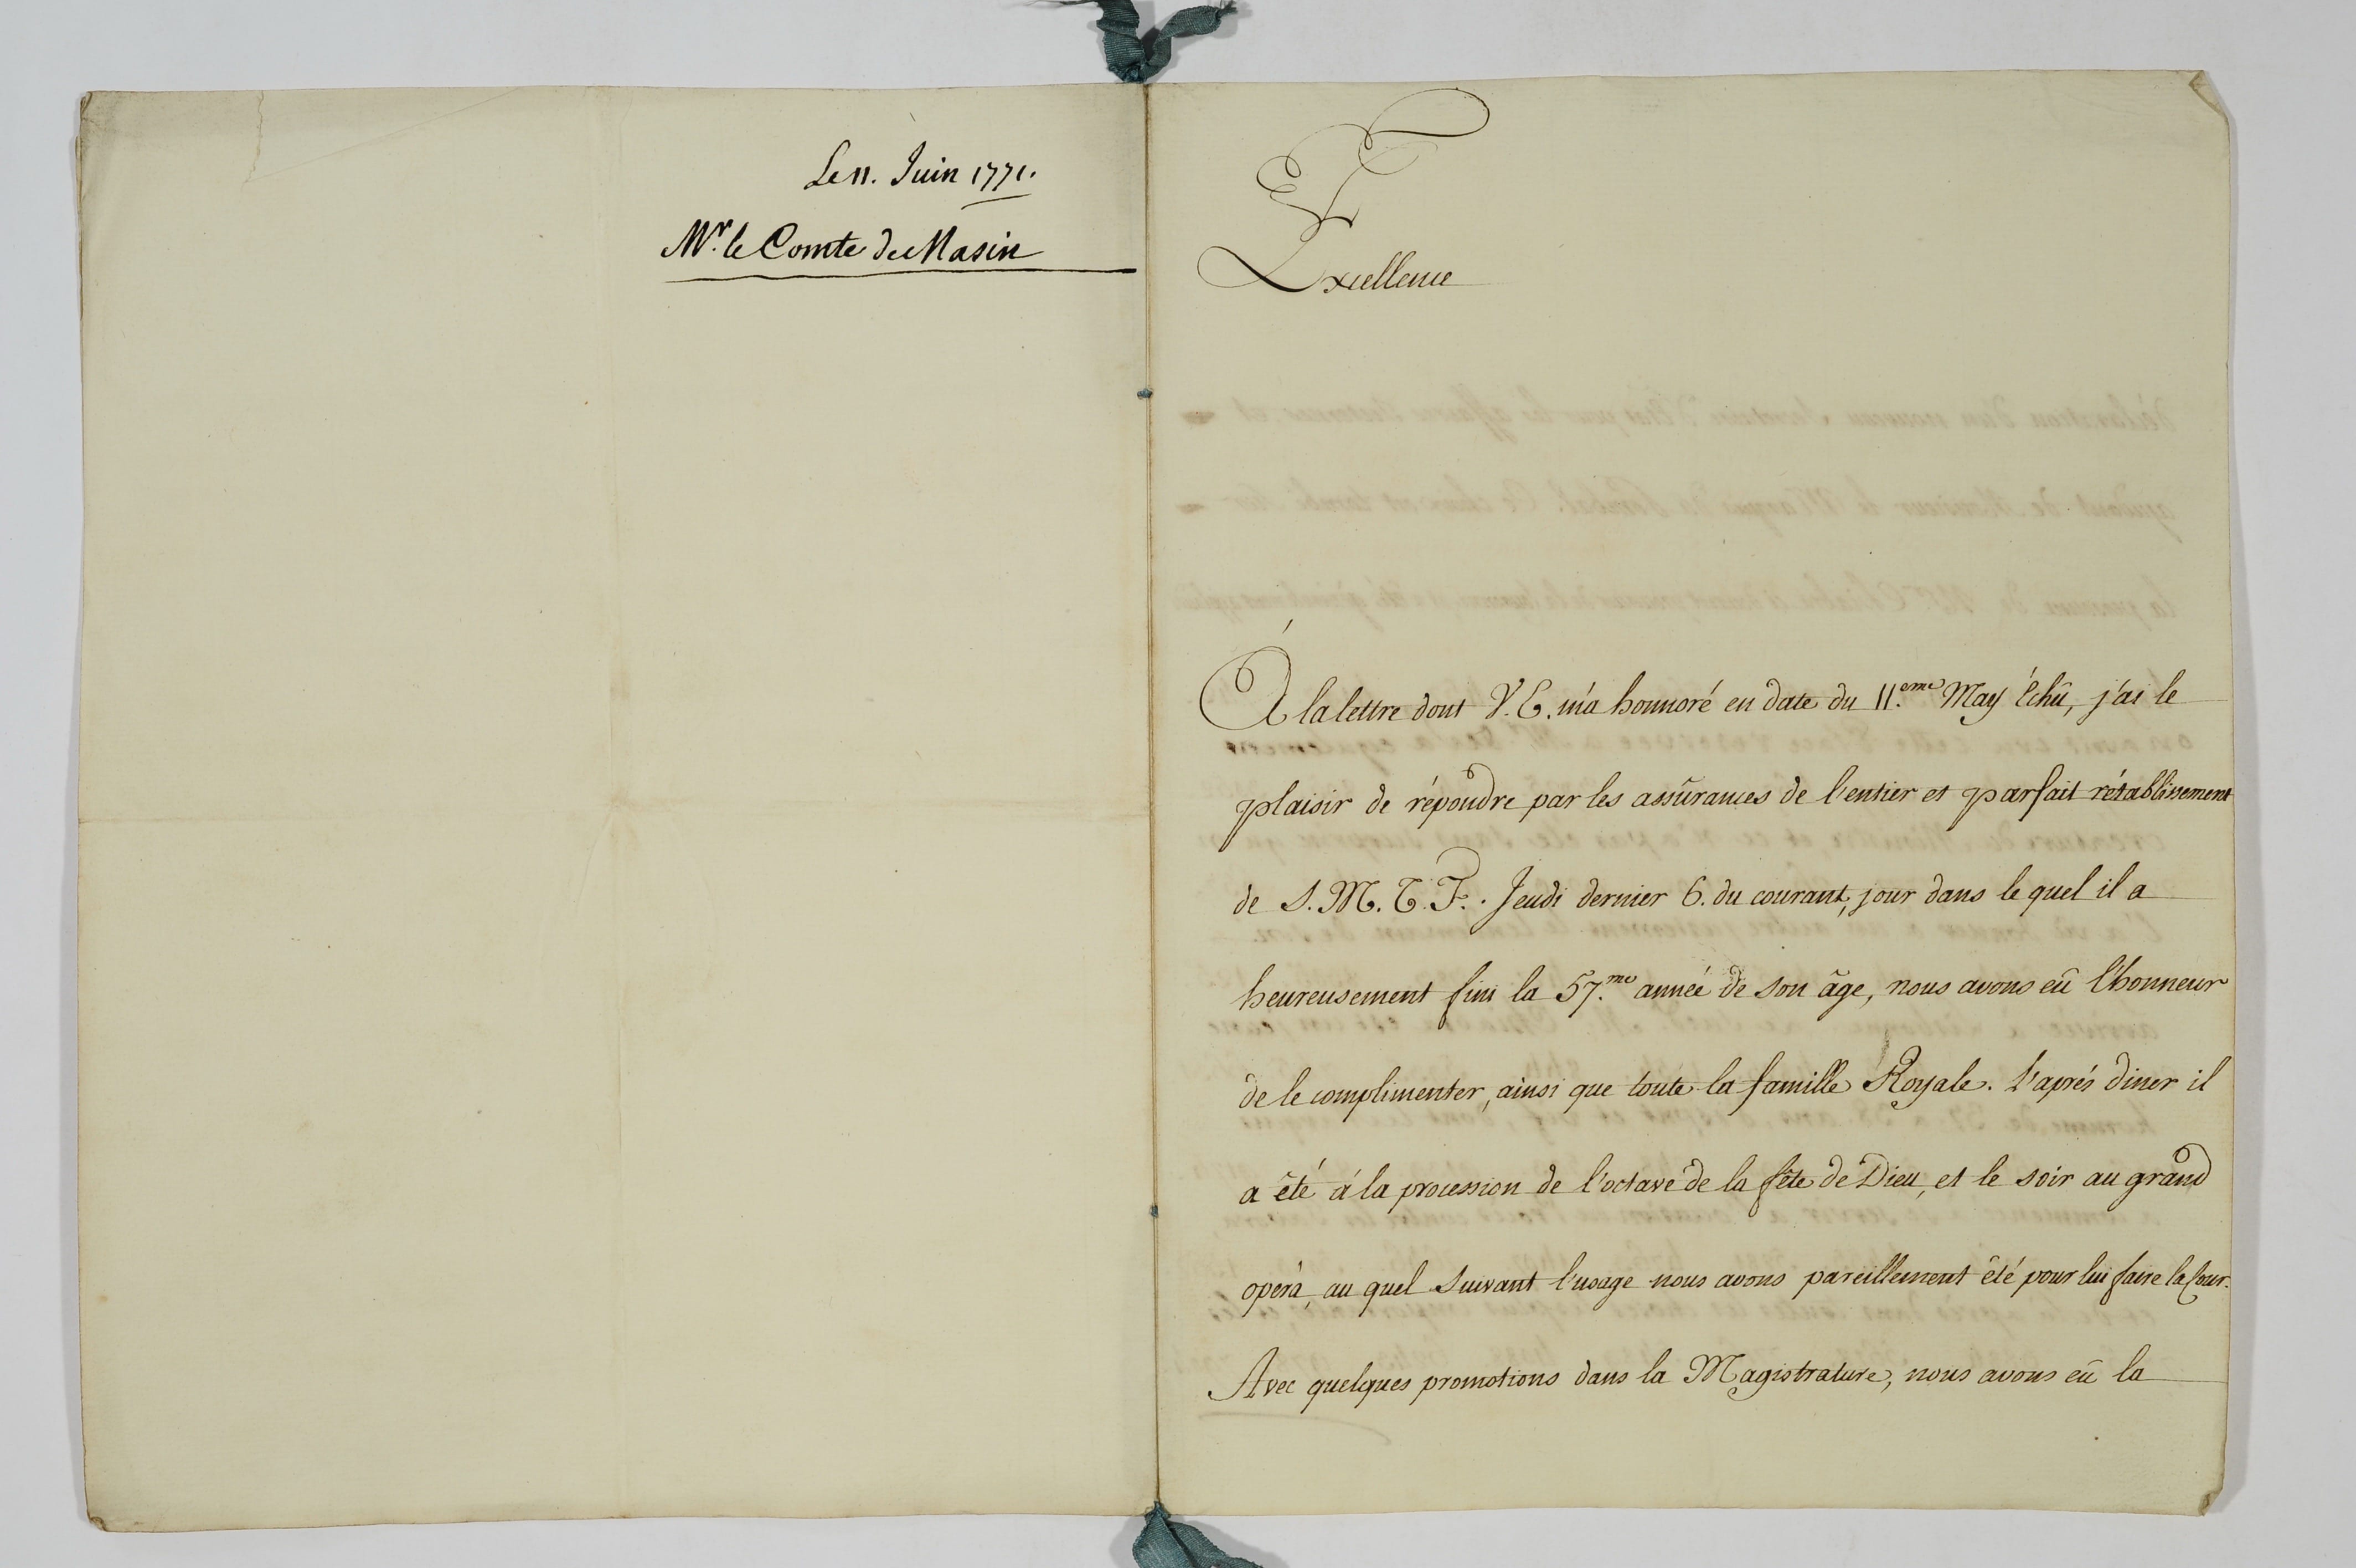 Le 11. Juin 1771.
Mr. le Comte de Masin
Excellence
À la lettre dont V. E. m'a honnoré en date du 11.eme May échû, j'ai le
plaisir de répondre par les assûrances de l'entier et parfait rétablissement
de S. M. T. F.. Jeudi dernier 6. du courant, jour dans le quel il a
heureusement fini la 57.me année de son âge, nous avons eû l'honneur
de le complimenter, ainsi que toute la famille Royale. L'aprés diner il
a êté á la procession de l'octave de la fête de Dieu, et le soir au grand
opéra, au quel suivant l'usage nous avons pareillement êté pour lui faire la Cour.
Avec quelques promotions dans la Magistrature, nous avons eû la